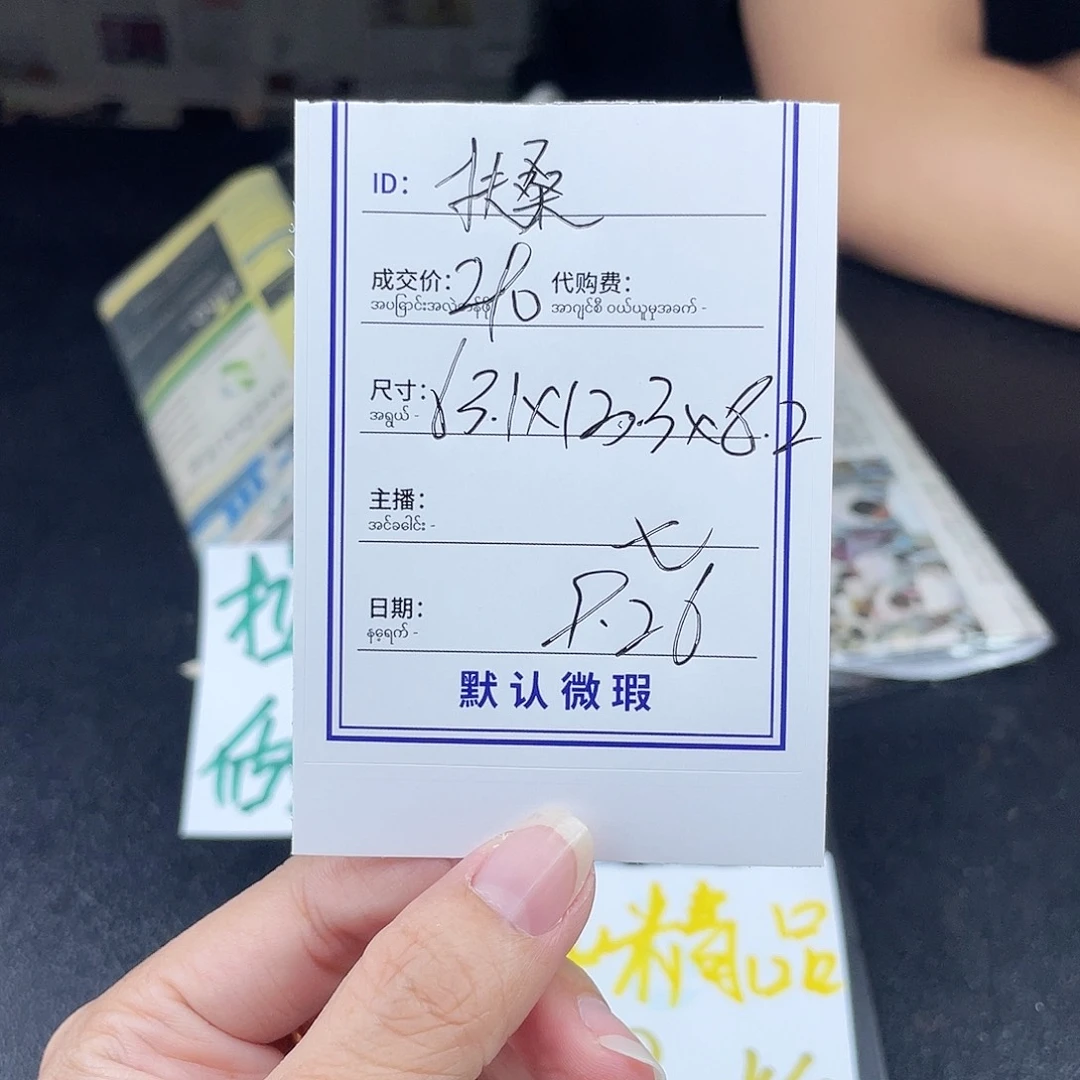 ID: 扶桑
成交价: 280 代购费:
အပြောင်းအလဲတန်ဖိုး အာဂျင်စီ ဝယ်ယူမှုအခက် -
尺寸: 63.1×12.3×8.2
အရွယ် -
主播: 七
အင်ခေါင်း -
日期: 8.26
နေ့ရက် -
默认微瑕
精品